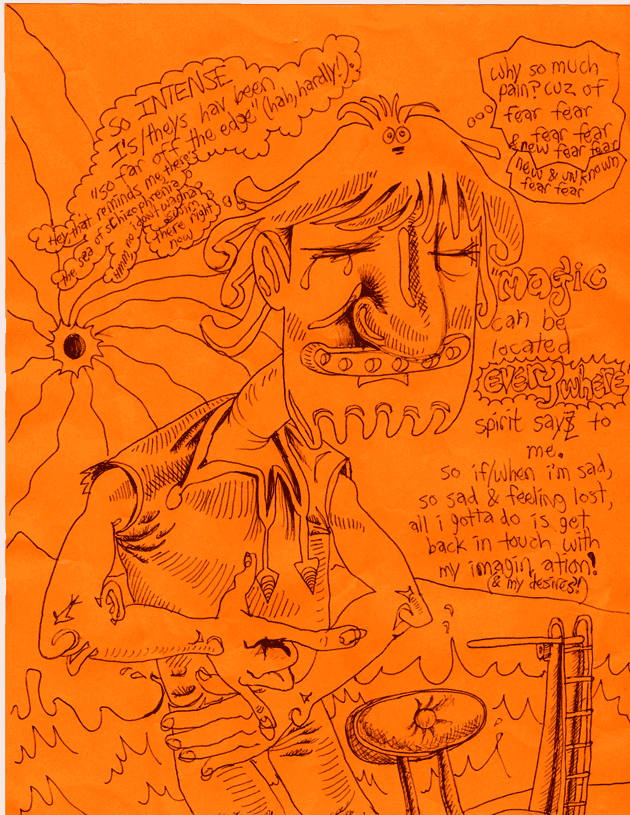 so INTENSE
I's/theys hav been
so far off the edge" (hah, hardly!).
"so
Hey, that reminds me, there's
the sea of schizophrenia
hmm, no i don't wanna
swim
there right
now
why so much
pain? cuz of
fear fear
fear fear
& new fear fear
new & unknown
fear fear
"magic
can be
located
everywhere"
spirit sayz to
me.
so if/when i'm sad,
so sad & feeling lost,
all i gotta do is get
back in touch with
my imagination!
(& my desires!)